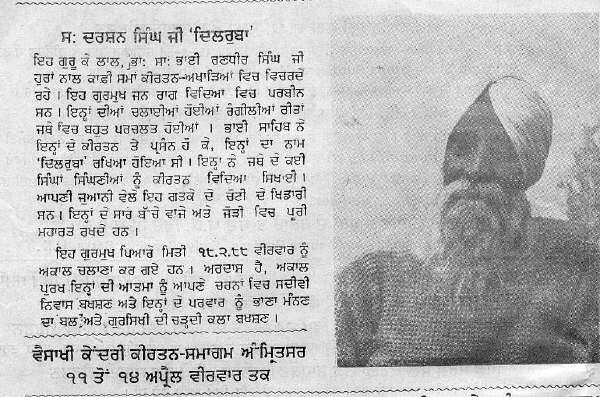 ਸ: ਦਰਸ਼ਨ ਸਿੰਘ ਜੀ 'ਦਿਲਰੁਬਾ'
ਇਹ ਗੁਰੂ ਕੇ ਲਾਲ, ਭਾ: ਸਾ: ਭਾਈ ਰਣਧੀਰ ਸਿੰਘ ਜੀ
ਹੁਰਾਂ ਨਾਲ ਕਾਫ਼ੀ ਸਮਾਂ ਕੀਰਤਨ-ਅਖਾੜਿਆਂ ਵਿਚ ਵਿਚਰਦੇ
ਰਹੇ । ਇਹ ਗੁਰਮੁਖ ਜਨ ਰਾਗ ਵਿਦਿਆ ਵਿਚ ਪਰਬੀਨ
ਸਨ । ਇਨ੍ਹਾਂ ਦੀਆਂ ਚਲਾਈਆਂ ਹੋਈਆਂ ਰੰਗੀਲੀਆਂ ਰੀਤਾਂ
ਜਥੇ ਵਿਚ ਬਹੁਤ ਪਰਚਲਤ ਹੋਈਆਂ । ਭਾਈ ਸਾਹਿਬ ਨੇ
ਇਨ੍ਹਾਂ ਦੇ ਕੀਰਤਨ ਤੋਂ ਪ੍ਰਸੰਨ ਹੋ ਕੇ, ਇਨ੍ਹਾਂ ਦਾ ਨਾਮ
'ਦਿਲਰੁਬਾ' ਰਖਿਆ ਹੋਇਆ ਸੀ । ਇਨ੍ਹਾਂ ਨੇ ਜਥੇ ਦੇ ਕਈ
ਸਿੰਘਾਂ ਸਿੰਘਣੀਆਂ ਨੂੰ ਕੀਰਤਨ ਵਿਦਿਆ ਸਿਖਾਈ ।
ਆਪਣੀ ਜੁਆਨੀ ਵੇਲੇ ਇਹ ਗਤਕੇ ਦੇ ਚੋਟੀ ਦੇ ਖਿਡਾਰੀ
ਸਨ । ਇਨ੍ਹਾਂ ਦੇ ਸਾਰੇ ਬੱਚੇ ਵਾਜੇ ਅਤੇ ਜੋੜੀ ਵਿਚ ਪੂਰੀ
ਮਹਾਰਤ ਰਖਦੇ ਹਨ ।
ਇਹ ਗੁਰਮੁਖ ਪਿਆਰੇ ਮਿਤੀ ੧੮.੨.੮੮ ਵੀਰਵਾਰ ਨੂੰ
ਅਕਾਲ ਚਲਾਣਾ ਕਰ ਗਏ ਹਨ । ਅਰਦਾਸ ਹੈ, ਅਕਾਲ
ਪੁਰਖ ਇਨ੍ਹਾਂ ਦੀ ਆਤਮਾ ਨੂੰ ਆਪਣੇ ਚਰਨਾਂ ਵਿਚ ਸਦੀਵੀ
ਨਿਵਾਸ ਬਖਸ਼ਣ ਅਤੇ ਇਨ੍ਹਾਂ ਦੇ ਪਰਵਾਰ ਨੂੰ ਭਾਣਾ ਮੰਨਣ
ਦਾ ਬਲ ਅਤੇ ਗੁਰਸਿਖੀ ਦੀ ਚੜ੍ਹਦੀ ਕਲਾ ਬਖਸ਼ਣ ।
ਵੈਸਾਖੀ ਕੇਂਦਰੀ ਕੀਰਤਨ-ਸਮਾਗਮ ਅੰਮ੍ਰਿਤਸਰ
੧੧ ਤੋਂ ੧੪ ਅਪ੍ਰੈਲ ਵੀਰਵਾਰ ਤਕ